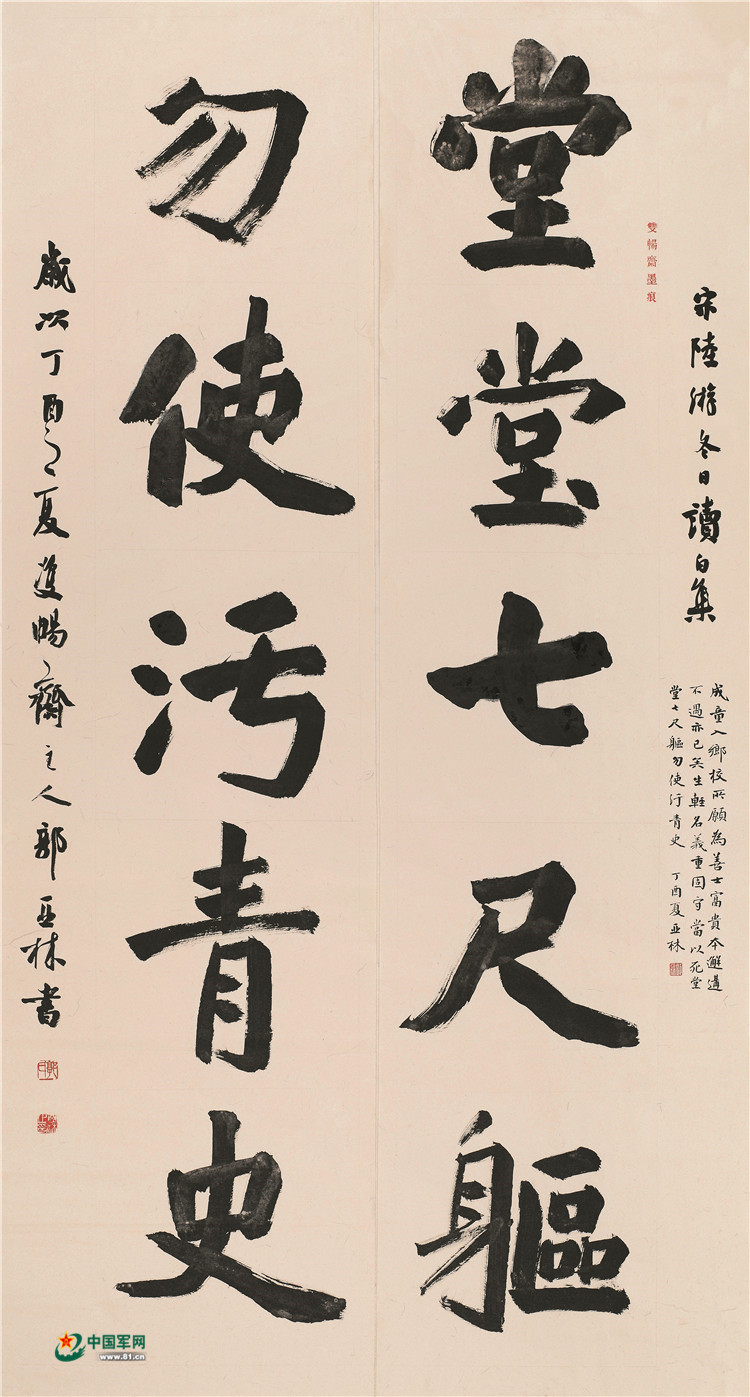 宋陸游冬日讀白集
成童入鄉校所願為善士富貴本邂逅
不遇亦已矣生輕名義重固守當以死堂
堂七尺軀勿使污青史 丁酉夏亚林
雙暢齋墨痕
堂堂七尺軀
勿使污青史
歲次丁酉之夏雙暢齋主人郭亚林書
中国军网
www.81.cn